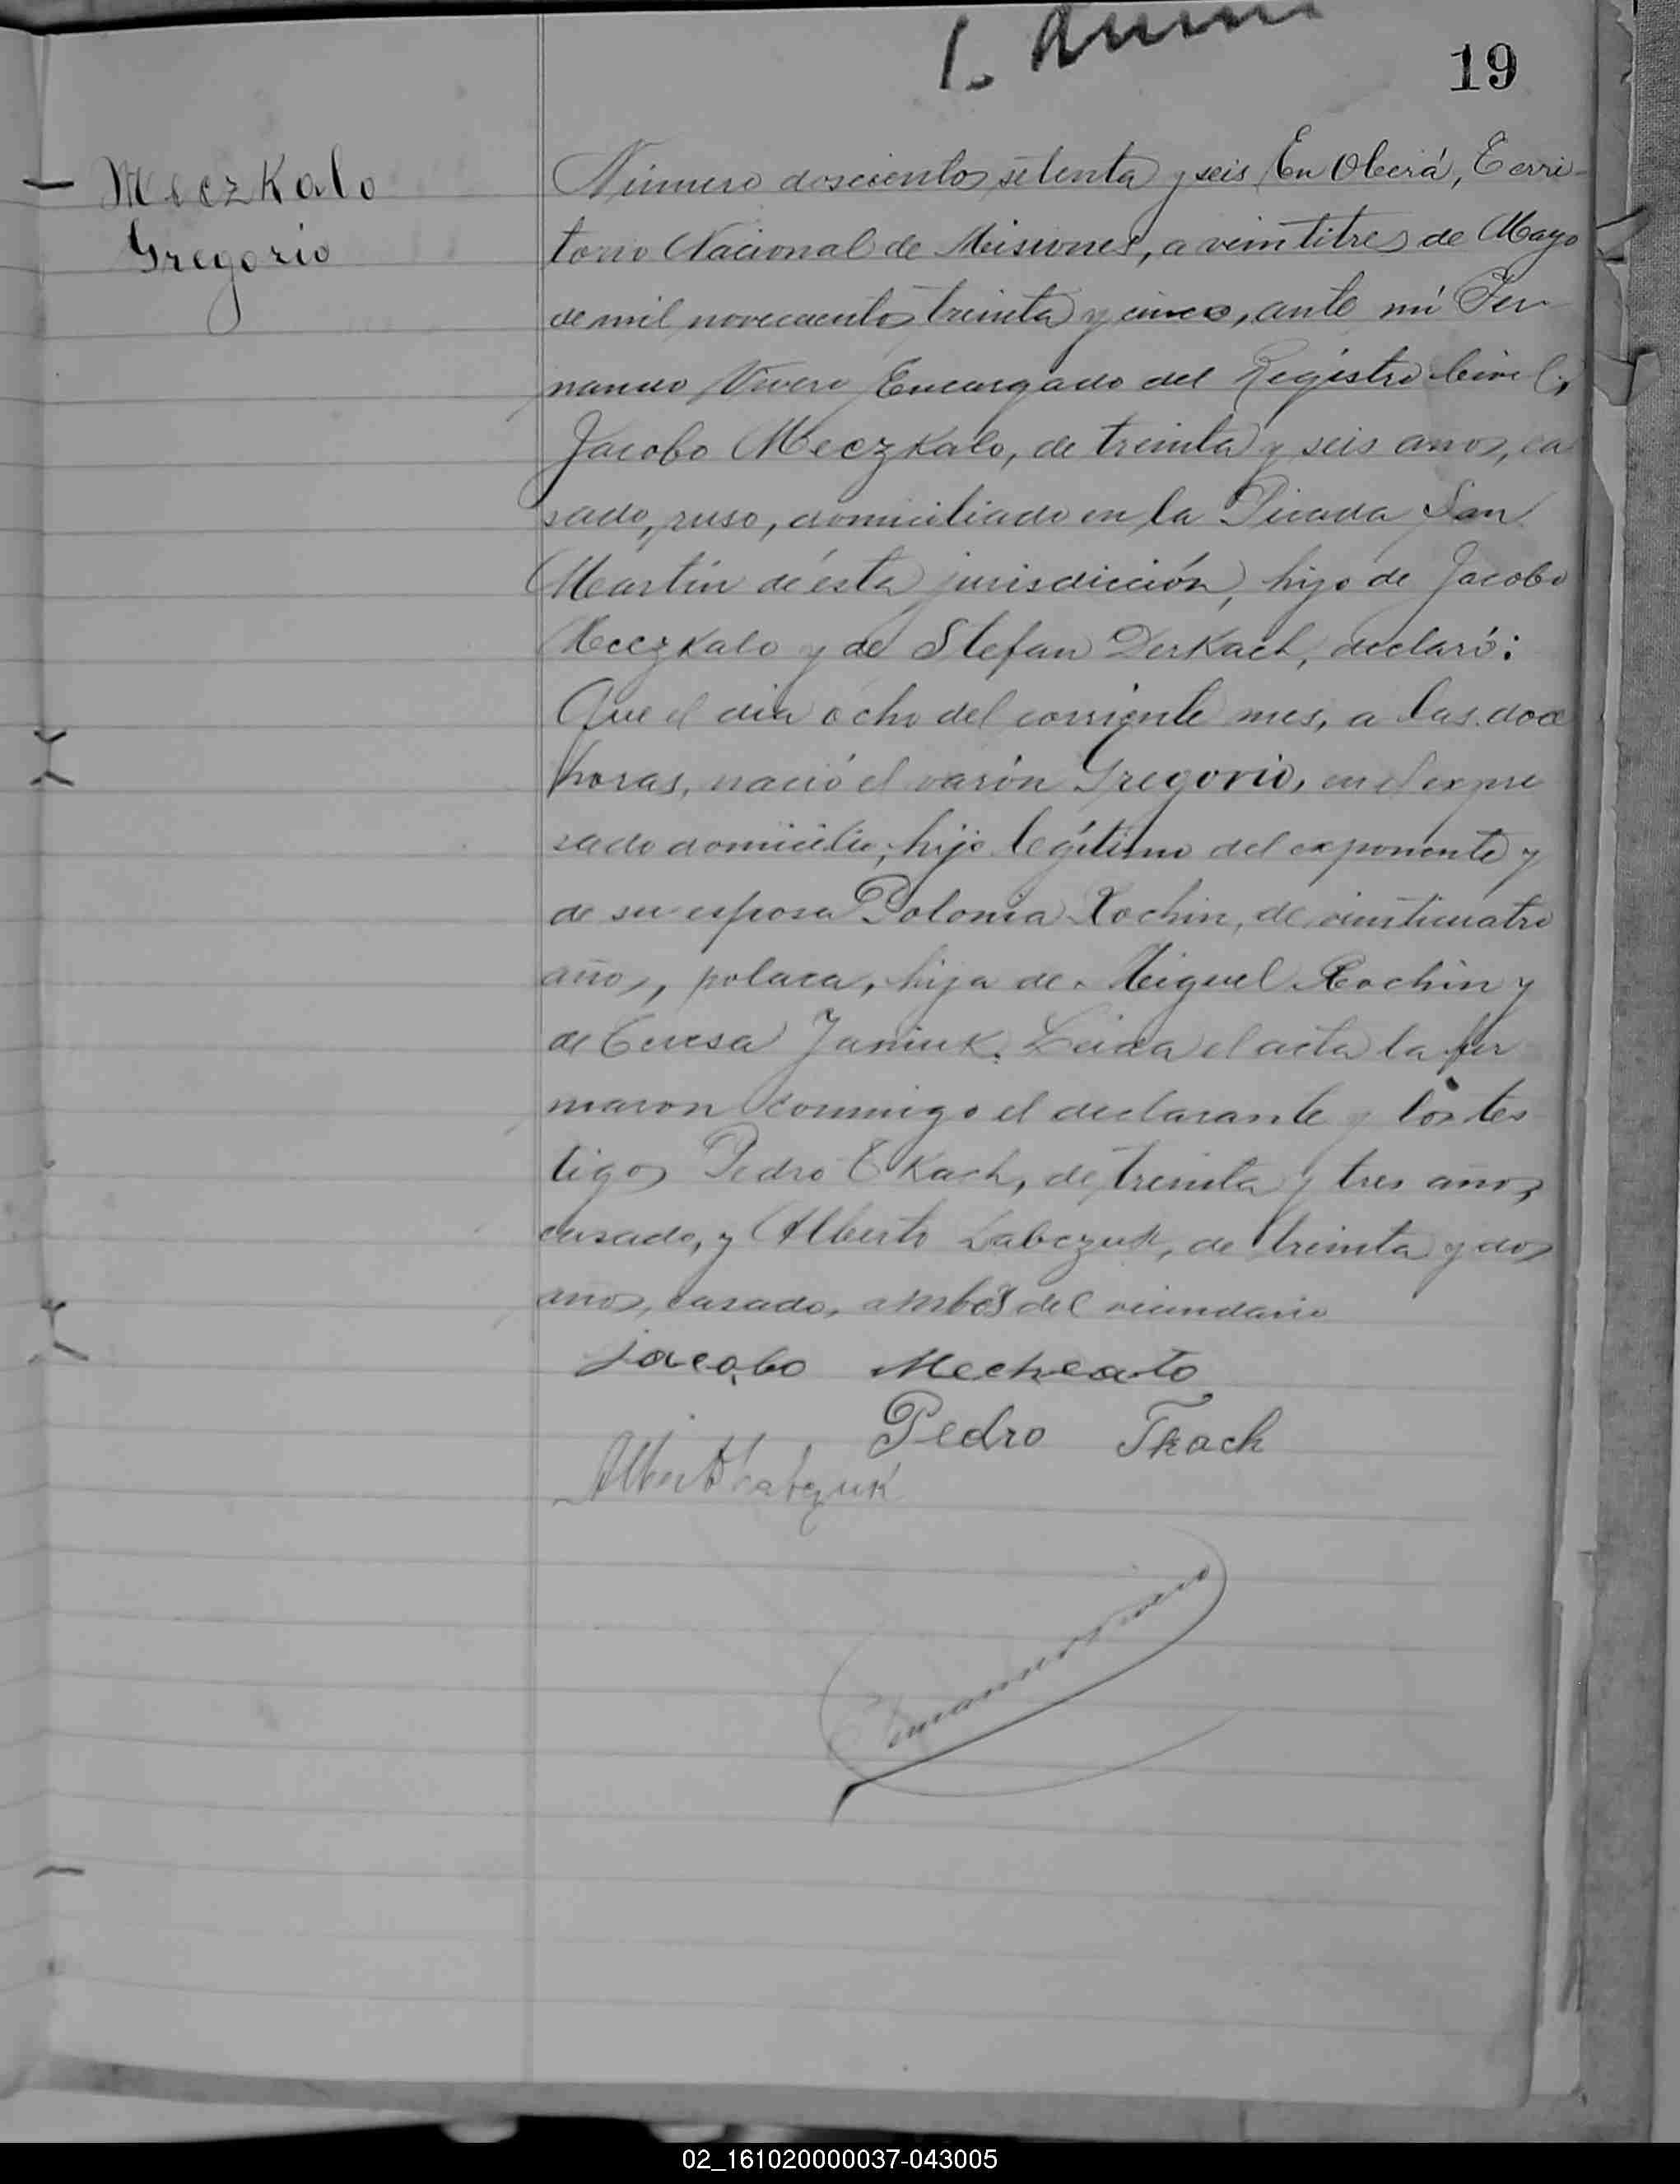 19
Meczkalo
Gregorio
Número doscientos setenta y seis En Oberá, Terri-
torio Nacional de Misiones, a veintitres de Mayo
de mil novecientos treinta y cinco, ante mí Fer
nando Vivero Encargado del Registro Civil,
Jacobo Meczkalo, de treinta y seis años, ca
sado, ruso, domiciliado en la Picada San
Martín de ésta jurisdicción, hijo de Jacobo
Meczkalo y de Stefan Derkach, declaró:
Que el dia ocho del corriente mes, a las doce
horas, nació el varón Gregorio, en el expre
sado domicilio, hijo legítimo del exponente y
de su esposa Polonia Kochin, de veinticuatro
años, polaca, hija de Miguel Kochin y
de Teresa Janiuk. Leida el acta la fir
maron conmigo el declarante y los tes
tigos Pedro Tkach, de treinta y tres años,
casado, y Alberto Labczuk, de treinta y dos
años, casado, ambos del vecindario
jacobo Mechcato
Pedro Tkach
02_161020000037-043005